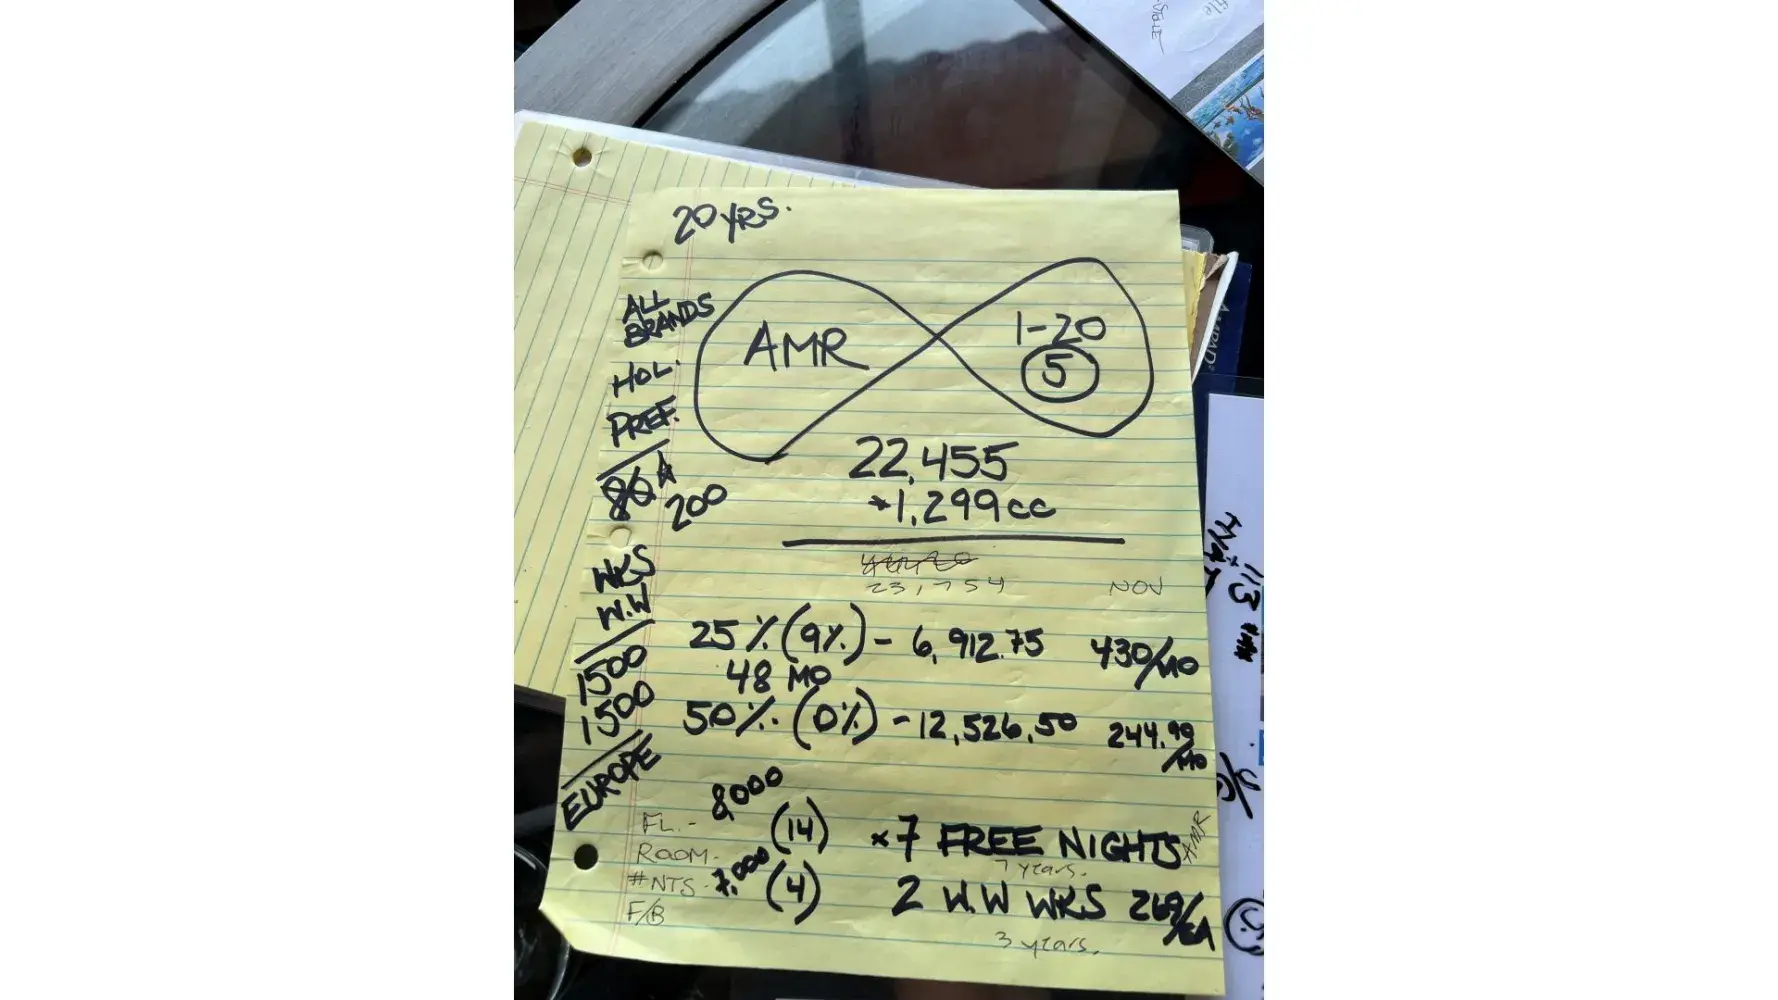 20 YRS.
ALL
BRANDS
HOL.
PREF.
200
WKS
W.W
1500
1500
EUROPE
AMR
1-20
5
22,455
+1,299cc
23,754
NOV
25% (9%) - 6,912.75 430/MO
48 MO
50%. (0%) - 12,526.50 244.99
/MO
8000
FL. - (14) x7 FREE NIGHTS AMR
ROOM. 7 years.
#NTS - 7,000 (4) 2 W.W WKS 269/EA
F/B
3 years.
file
AMPAD
HYATT
113